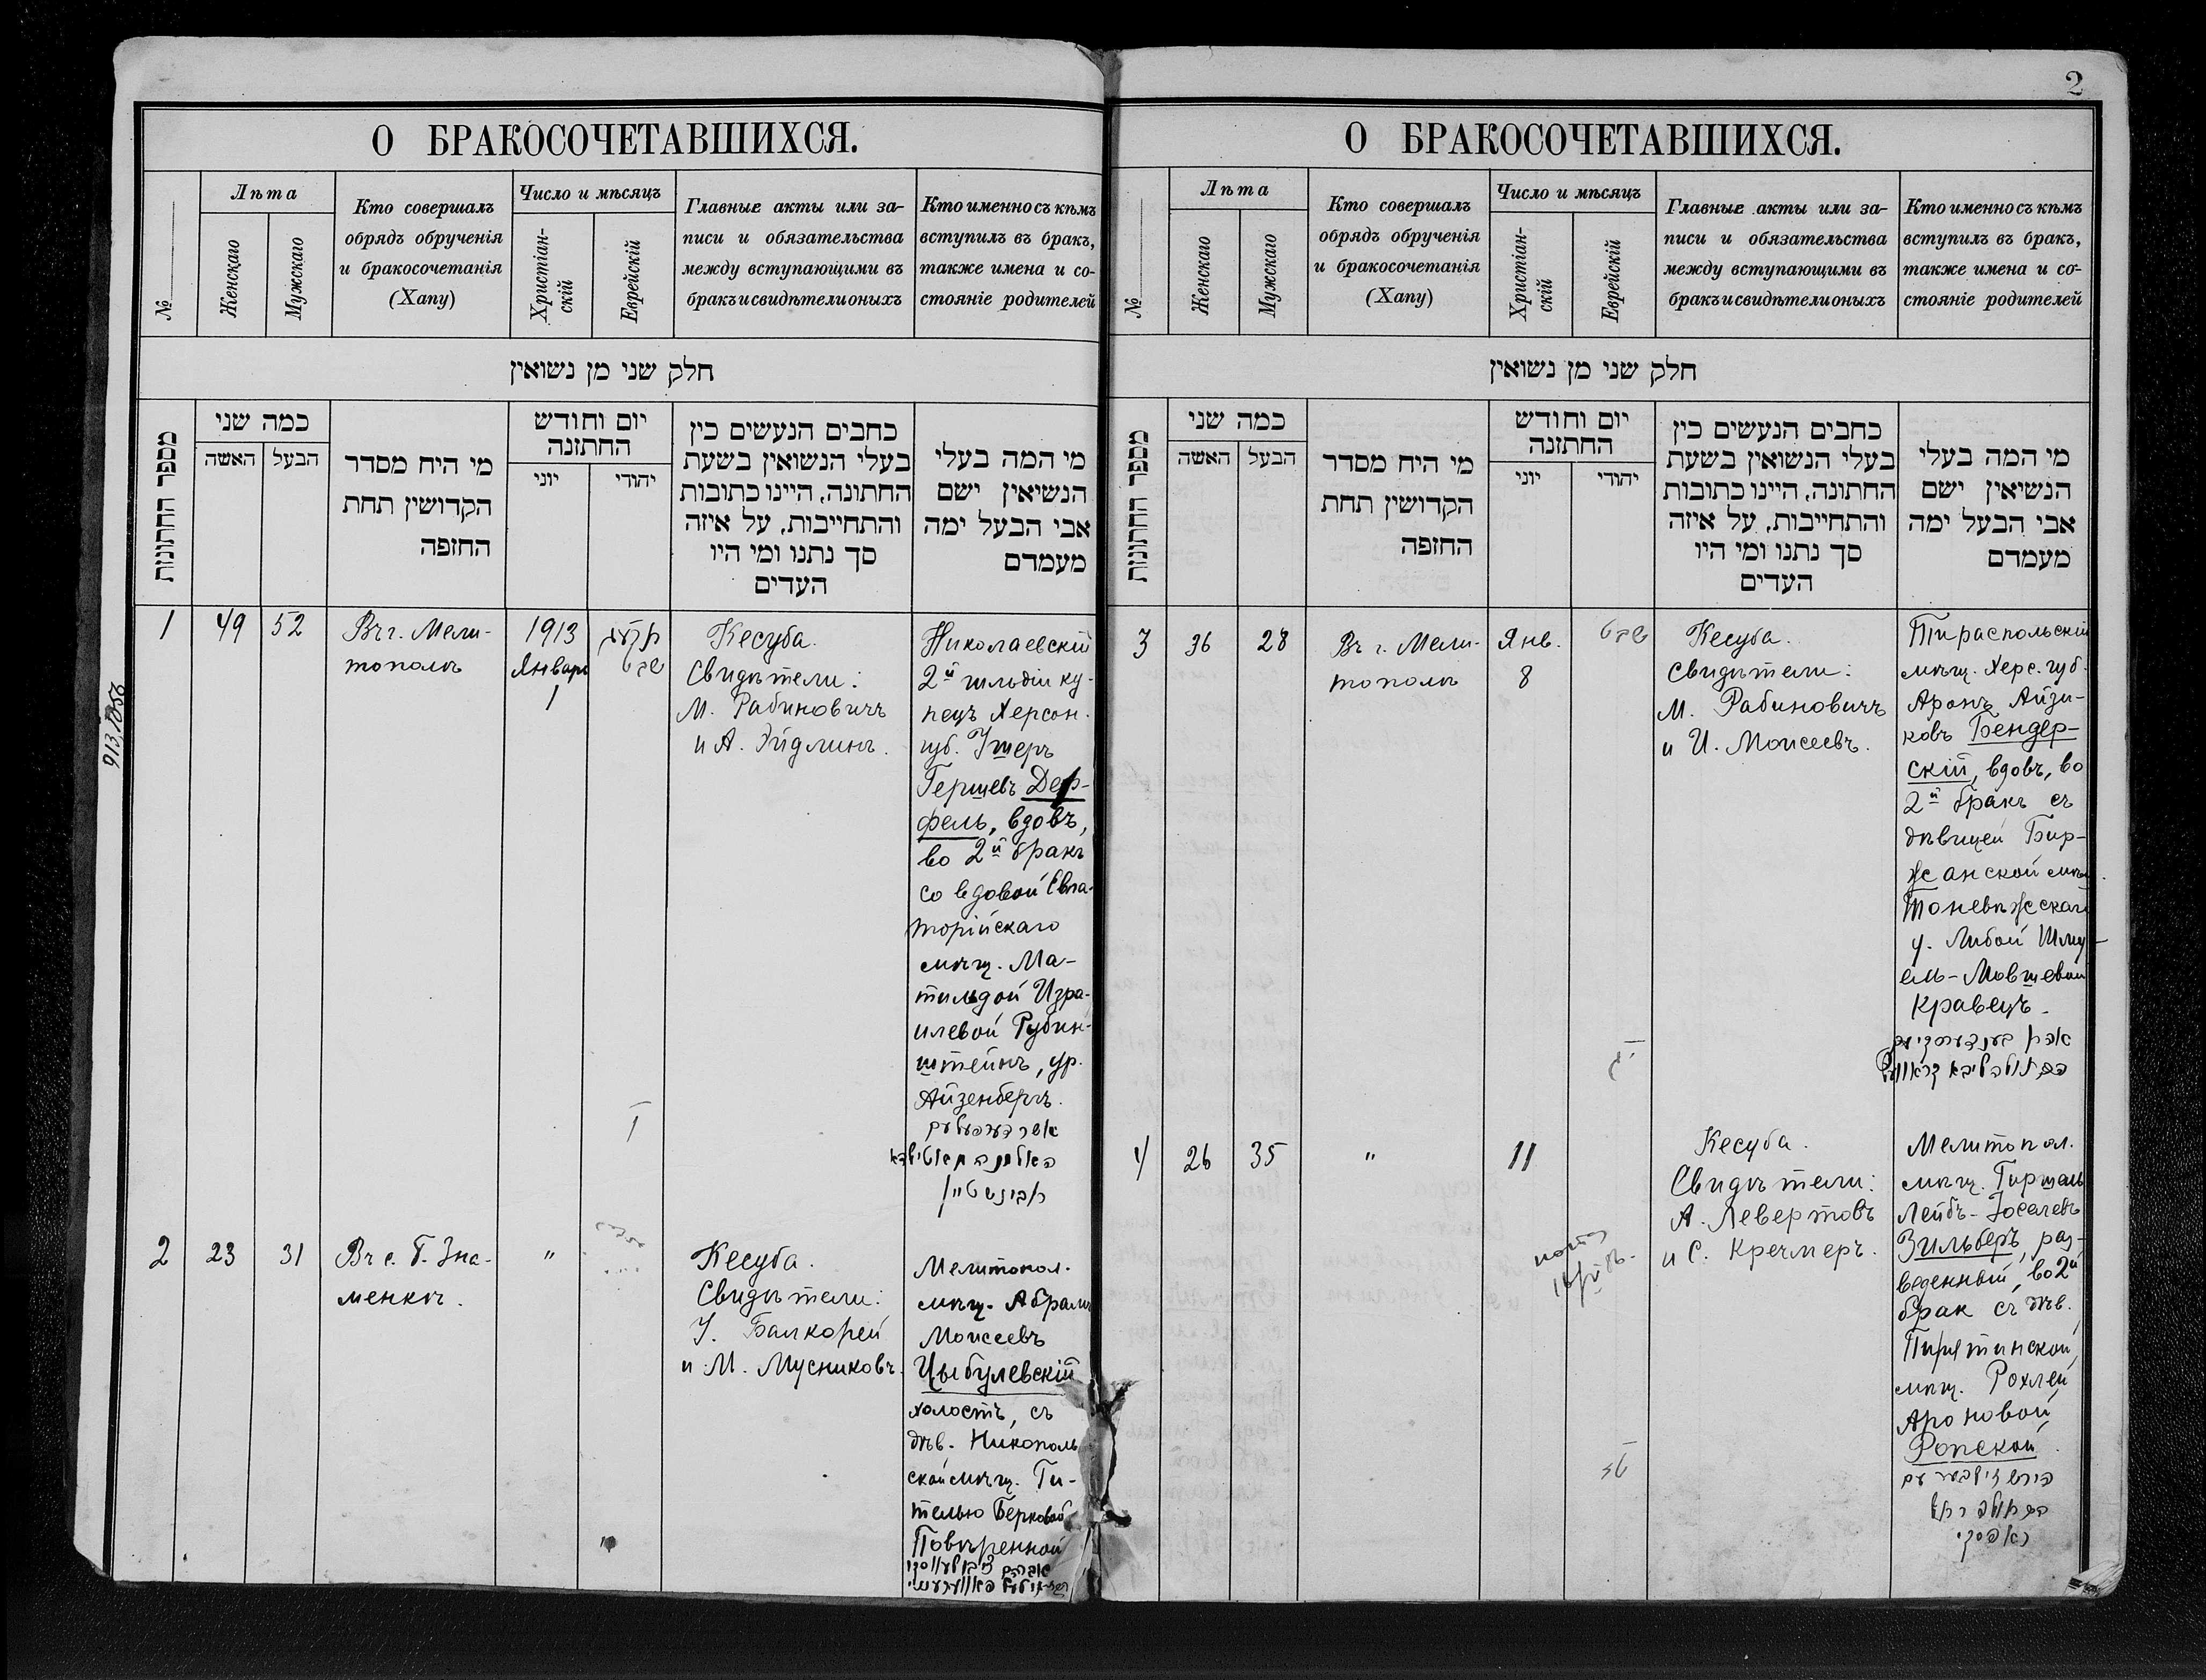 2
О БРАКОСОЧЕТАВШИХСЯ.
№
Лѣта
Женскаго
Мужскаго
Кто совершалъ
обрядъ обрученія
и бракосочетанія
(Хапу)
Число и мѣсяцъ
Христіан-
скій
Еврейскій
Главные акты или за-
писи и обязательства
между вступающими въ
бракъ и свидѣтели оныхъ
Кто именно съ кѣмъ
вступилъ въ бракъ,
также имена и со-
стояніе родителей
חלק שני מן נשואין
מספר החתונות
כמה שני
האשה
הבעל
מי היח מסדר
הקדושין תחת
החופה
יום וחודש
החתונה
יוני
יהודי
כחבים הנעשים כין
בעלי הנשואין בשעת
החתונה, היינו כתובות
והתחייבות, על איזה
סך נתנו ומי היו
העדים
מי המה בעלי
הנשיאין ישם
אבי הבעל ימה
מעמדם
1
49
52
Въ г. Мели-
тополѣ
1913
Январь
1
תרעג
שבט
Кесуба.
Свидѣтели:
М. Рабиновичъ
и А. Эйдлинъ.
Николаевскій
2й гильдіи ку-
пецъ Херсон.
губ. Ушеръ
Гершевъ Дер-
фель, вдовъ,
во 2й бракъ
со вдовой Евпа-
торійскаго
мѣщ. Ма-
тильдой Изра-
илевой Рубин-
штейнъ, ур.
Айзенбергъ.
אשר דערפעל עם
האלמנה מאטילדא
רובינשטיין
2
23
31
Въ с. Б. Зна-
менкѣ.
"
Кесуба.
Свидѣтели:
У. Балкорей
и М. Мусниковъ.
Мелитопол.
мѣщ. Абрамъ
Моисеевъ
Цыбулевскій
холостъ, съ
дѣв. Никополь
ской мѣщ. Ги-
телью Берковой
Повѣренной
אברהם ציבולעווסקי
О БРАКОСОЧЕТАВШИХСЯ.
№
Лѣта
Женскаго
Мужскаго
Кто совершалъ
обрядъ обрученія
и бракосочетанія
(Хапу)
Число и мѣсяцъ
Христіан-
скій
Еврейскій
Главные акты или за-
писи и обязательства
между вступающими въ
бракъ и свидѣтели оныхъ
Кто именно съ кѣмъ
вступилъ въ бракъ,
также имена и со-
стояніе родителей
חלק שני מן נשואין
מספר החתונות
כמה שני
האשה
הבעל
מי היח מסדר
הקדושין תחת
החופה
יום וחודש
החתונה
יוני
יהודי
כחבים הנעשים כין
בעלי הנשואין בשעת
החתונה, היינו כתובות
והתחייבות, על איזה
סך נתנו ומי היו
העדים
מי המה בעלי
הנשיאין ישם
אבי הבעל ימה
מעמדם
3
36
28
Въ г. Мели-
тополѣ
Янв.
8
שבט
Кесуба.
Свидѣтели:
М. Рабиновичъ
и И. Моисеевъ.
Тираспольскій
мѣщ. Херс. губ.
Аронъ Айзи-
ковъ Бендер-
скій, вдовъ, во
2й бракъ съ
дѣвицей Бир-
жанской мѣщ.
Поневѣжскаго
у. Либой Шму-
ель-Мовшевой
Кравецъ.
אהרן בענדערסקי עם
הבתולה ליבא קראוועץ
4
26
35
"
11
Кесуба.
Свидѣтели:
А. Левертовъ
и С. Кречмеръ.
Мелитопол.
мѣщ. Гиршель
Лейбъ-Іоселевъ
Зильберъ, раз-
веденный, во 2й
брак съ дѣв.
Пирятинской
мѣщ. Рохлей
Ароновой
Ропской.
הירש זילבער עם
הבתולה רחל
ראפסקי